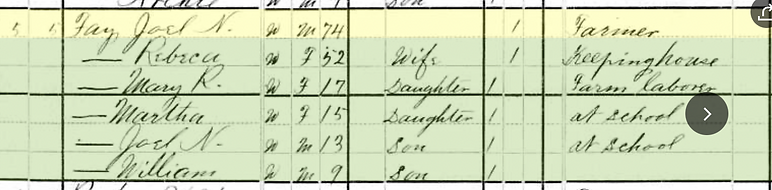 5 5 Fay Joel N. W M 74 1 Farmer
— Rebecca W F 52 Wife 1 Keeping house
— Mary R. W F 17 Daughter 1 Farm laborer
— Martha W F 15 Daughter 1 at school
— Joel N. W M 13 Son 1 at school
— William W M 9 Son 1